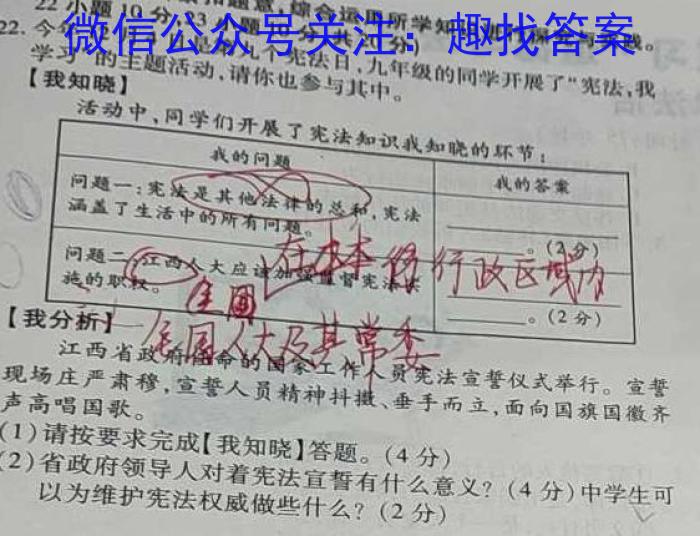 22小题10分
22.今
是
九个宪法日,九年级的同学开展了"宪法,我
微信公众号关注:趣找答案
学习"的主题活动,请你也参与其中。
【我知晓】
活动中,同学们开展了宪法知识我知晓的环节:
我的问题
我的答案
问题一:宪法是其他法律的总和,宪法
涵盖了生活中的所有问题。
。(2分)
问题二:江西人大应该加强监督宪法实
施的职权。
。(2分)
在本
行政区域内
全国
全国人大及其常委
【我分析】
江西省政府任命的国家工作人员宪法宣誓仪式举行。宣誓
现场庄严肃穆,宣誓人员精神抖擞、垂手而立,面向国旗国徽齐
声高唱国歌。
(1)请按要求完成【我知晓】答题。(4分)
(2)省政府领导人对着宪法宣誓有什么意义?(4分)中学生可
以为维护宪法权威做些什么?(2分)